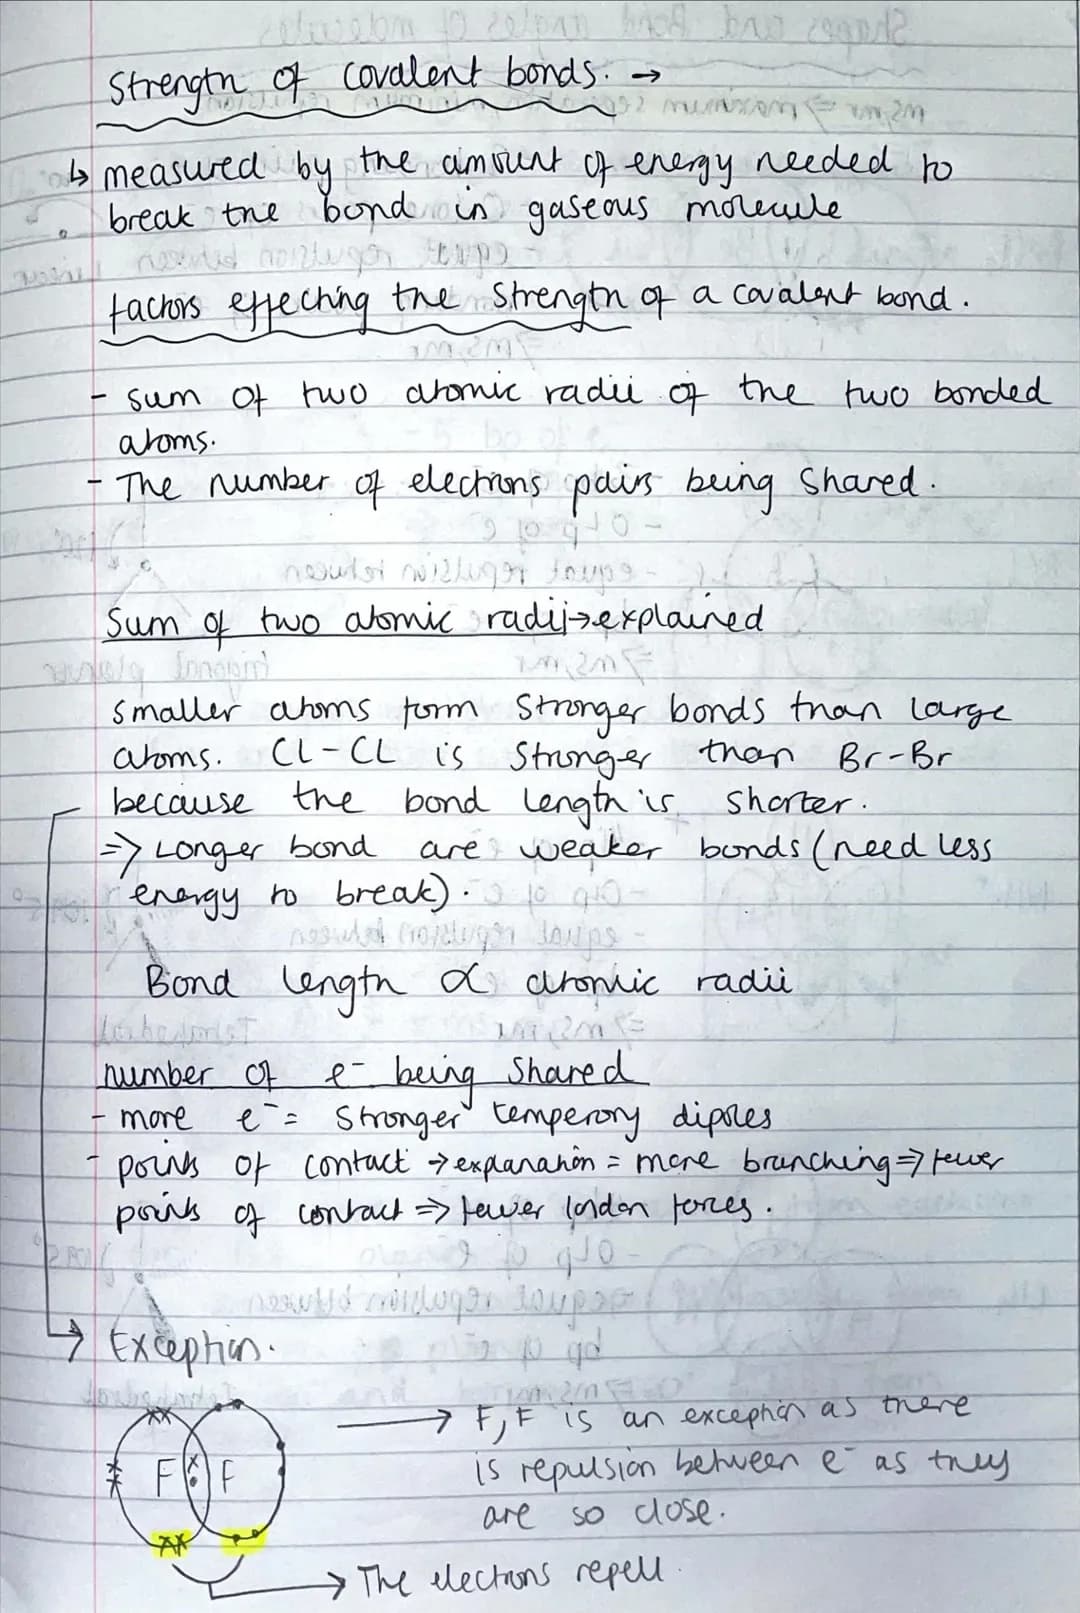 Strength of covalent bonds. →
↳ measured by the amount of energy needed to
break the bond in gaseous molecule
factors effecting the strength of a covalent bond.
- sum of two atomic radii of the two bonded
atoms.
- The number of electrons pairs being shared.
Sum of two atomic radii→explained
smaller atoms form stronger bonds than large
atoms. Cl-Cl is stronger than Br-Br
because the bond length is shorter.
=> Longer bond are weaker bonds (need less
energy to break).
Bond length ∝ atomic radii
number of e⁻ being shared
- more e⁻ = stronger temperory dipoles
- points of contact → expanation = more branching => fewer
points of contact => fewer london forces.
→ Exception.
F F
→ F, F is an exception as there
is repulsion between e⁻ as they
are so close.
→ The electrons repell.